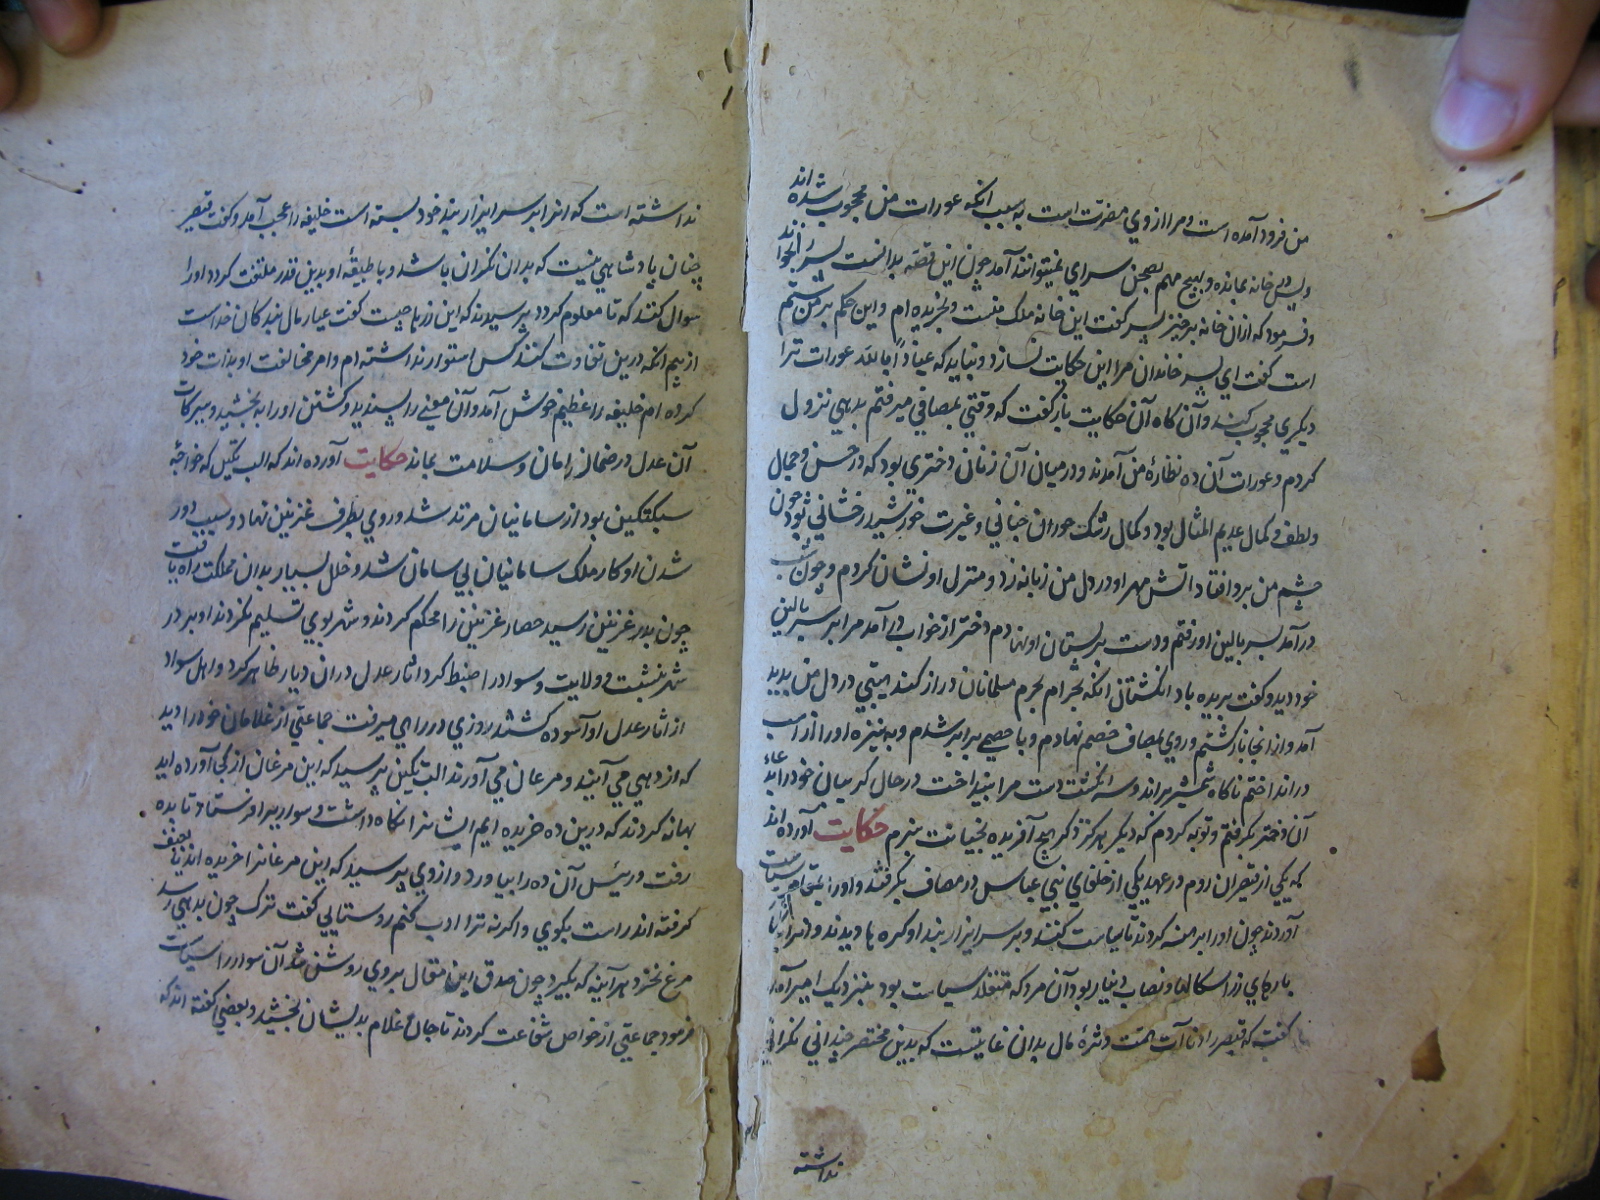 من فرود آمده است و مرا از وي مضرّت است به سبب آنکه عورات من محجوب شده اند
و پس در خانه بمانده و بهیچ مهم بصحن سراي نمیتوانند آمد چون این قصّه بدانست پسر را بخواند
و فرمود که ازان خانه برخیز پسر گفت این خانه ملک منست و بخریده ام و این حکم بر من ستم
است گفت اي پسر خاندان مرا این حکایت نسازد و نباید که عیاذاً بالله عورات ترا
دیگري محجوب کند و آن گاه آن حکایت باز گفت که وقتي بمصافي میرفتم بدیهي نزول
کردم و عورات آن ده نظارهٔ من آمدند و درمیان آن زنان دختري بود که در حسن و جمال
و لطف و کمال عدیم المثال بود و کمال رشک حوران جناني و غیرت خورشید رخشاني بود چون
چشم من برو افتاد آتش مهر او در دل من زبانه زد و منزل او نشان کردم و چون شب
درآمد بسر بالین او رفتم و دست بر پستان او نهادم دختر از خواب درآمد مرا بر سر بالین
خود دید و گفت بریده باد انگشتان آنکه بحرام بحرم مسلمانان دراز کند هیبتي در دل من پدید
آمد و از انجا بازگشتم و روي بمصاف خصم نهادم و با خصمے برابر شدم و به نیزه او را از اسب
در انداختم ناگاه شمشیر براند و سه انگشت دست مرا بینداخت درحال گریبان خود را بدعاء
آن دختر بگرفتم و توبه کردم که دیگر هرگز ذکر هیچ آفریده بخیانت نبرم حکایت آورده اند
که یکي از قیصران روم در عهد یکي از خلفاي بني عباس در مصاف بگرفتند و او را بمقام سیاست
آوردند چون او را برهنه کردند تا سیاست کنند و بر سر ایزار بند او گره ها دیدند و
بارهاي زر اسکالها و نصاب دینار بود آن مرد که متقلد سیاست بود بنزدیک امیر آمد
گفت که قیصر را دنائت همّت و شرهٔ مال بدان غایتست که بدین مختصر چنداني نگراني
نداشته
نداشته است که انرا بر سر ایزار بند خود بسته است خلیفه را عجب آمد و گفت قیصر
چنان پادشاهي نیست که بدان نگران باشد و با طبیقهٔ او بدین قدر ملتفت گردد او را
سوال کنند که تا معلوم گردد پرسیدند که این زر ها چیست گفت عیار مال بندگان خداست
از بیم آنکه درین تفاوت کنند کس استوار نداشته ام و امر مخالفت او بذات خود
کرده ام خلیفه را عظیم خوش آمد و آن معني را پسندید و کشتن او را به بخشید و ببرکات
آن عدل در ضمان امان و سلامت بماند حکایت آورده اند که الب تکین که خواجهٔ
سبکتکین بود از سامانیان مرتد شد و روي بطرف غزنین نهاد و بسبب دور
شدن او کار ملک سامانیان بي سامان شد و خلل بسیار بدان مملکت راه یافت
چون بدر غزنین رسید حصار غزنین را محکم کردند و شهر بوي تسلیم نکردند او بر در
شهر نشست و ولایت و سواد را ضبط کرد آثار عدل دران دیار ظاهر کرد و اهل سواد
از آثار عدل او آسوده گشتند روزي در راهي میرفت جماعتي از غلامان خود را دید
که از دهي مي آیند و مرغان مي آورند الب تکین پرسید که این مرغان از کجا آورده اید
بهانه کردند که درین ده خریده ایم ایشانرا نگاه داشت و سواریرا فرستاد تا بده
رفت و رئیس آن ده را بیاورد و از وي پرسید که این مرغانرا خریده اند یا بعنف
گرفته اند راست بگوي و اگر نه ترا ادب کنم روستایي گفت ترک چون بدیهي رسد
مرغ نخرد هر آینه که بگیرد چون صدق این مقال بر وي روشن شد آن سوار را سیاست
فرمود جماعتي از خواص شفاعت کردند تا جان غلام بدیشان بخشید و بعضي گفته اند که